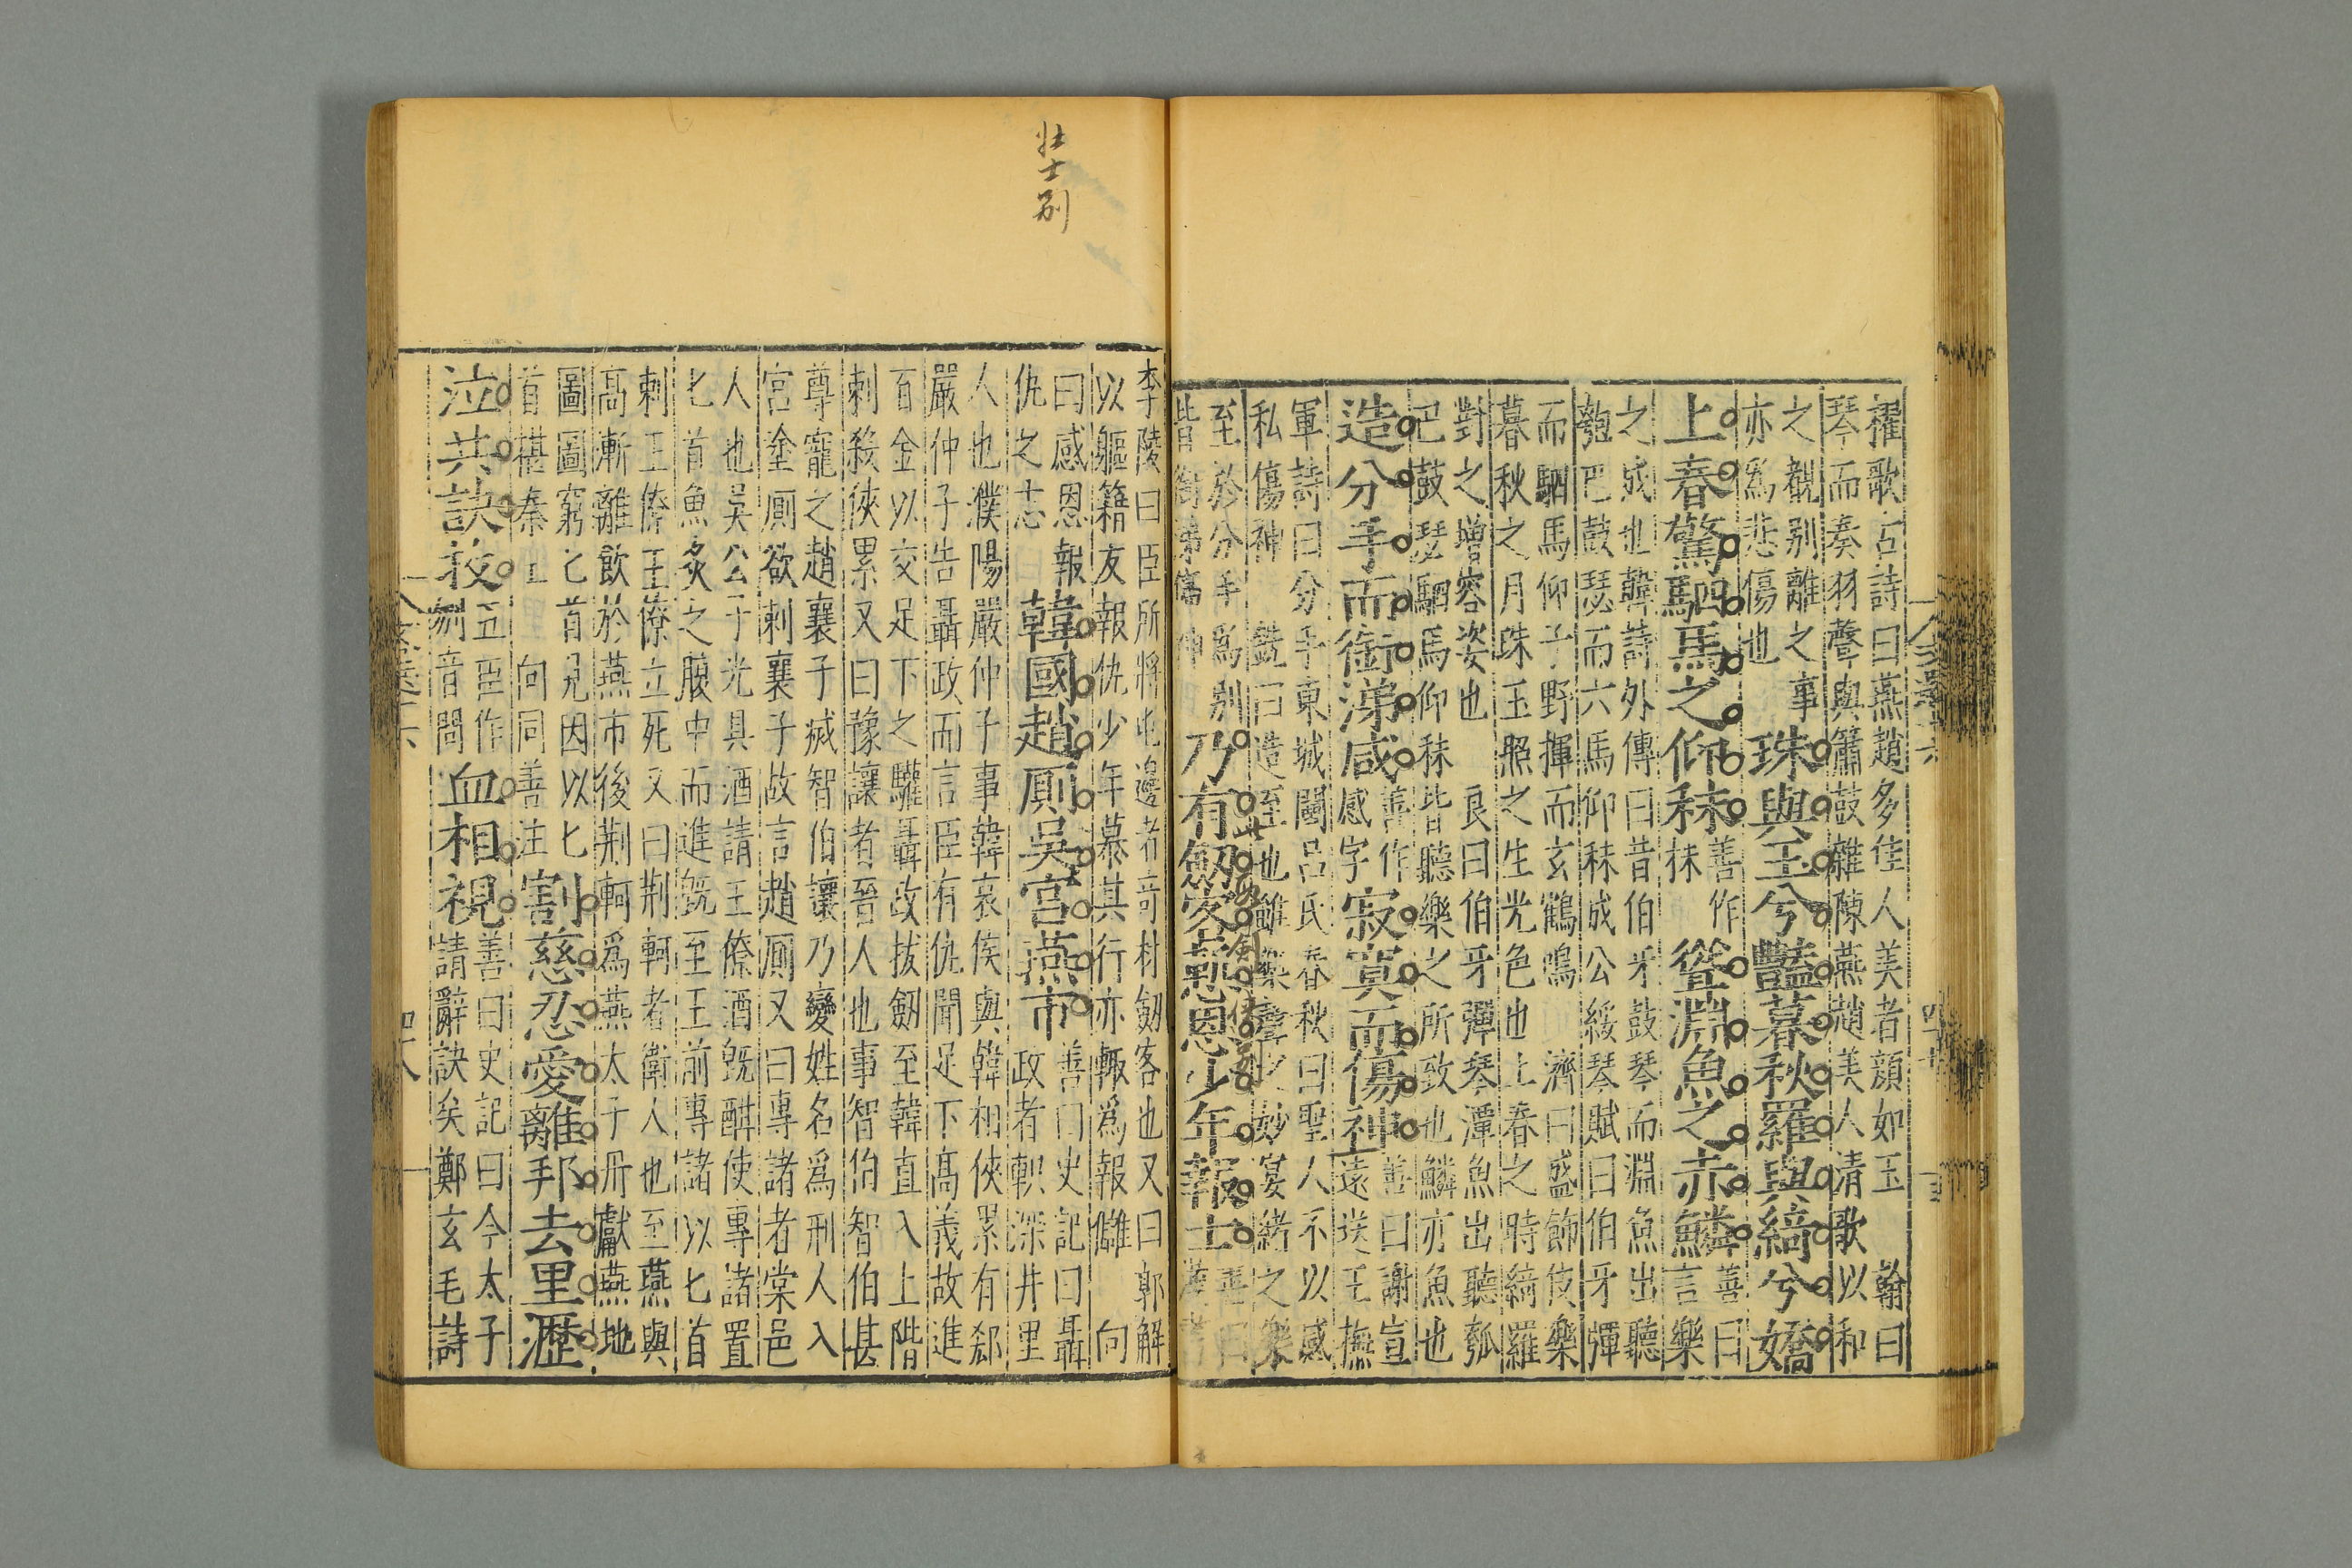 櫂歌古詩曰燕趙多佳人美者顔如玉 翰曰
琴而奏羽聲與簫鼓雜陳燕趙美人清歌以和
之觀別離之事
亦為悲傷也
珠與玉兮豔暮秋羅與綺兮嬌
上春驚駟馬之仰秣
善作
抹
聳淵魚之赤鱗
善曰
言樂
之成也韓詩外傳曰昔伯牙鼓琴而淵魚出聽
瓠巴鼓瑟而六馬仰秣成公綏琴賦曰伯牙彈
而駟馬仰子野揮而玄鶴鳴 濟曰盛飾伎樂
暮秋之月珠玉照之生光色也上春之時綺羅
對之增容姿也 良曰伯牙彈琴潭魚出聽瓠
巴鼓瑟駟馬仰秣皆聽樂之所致也鱗亦魚也
造分手而銜涕咸
善作
感字
寂寞而傷神
善曰謝宣
遠送王撫
軍詩曰分手東城闉呂氏春秋曰聖人不以感
私傷神 銑曰造至也雖樂聲之妙宴緒之樂
至於分手為別
皆銜涕傷神
乃有劒客慙恩少年報士
善曰
李陵曰臣所將屯邊者奇材劒客也又曰郭解
以軀籍友報仇少年慕其行亦輙為報讎 向
曰感恩報
仇之志
韓國趙厠吳宮燕市
善曰史記曰聶
政者軹深井里
人也濮陽嚴仲子事韓哀侯與韓相俠累有郄
嚴仲子告聶政而言臣有仇聞足下高義故進
百金以交足下之驩聶政拔劒至韓直入上階
刺殺俠累又曰豫讓者晉人也事智伯智伯甚
尊寵之趙襄子滅智伯讓乃變姓名為刑人入
宮塗厠欲刺襄子故言趙厠又曰專諸者棠邑
人也吳公子光具酒請王僚酒既酣使專諸置
匕首魚炙之腹中而進既至王前專諸以匕首
刺王僚王僚立死又曰荆軻者衛人也至燕與
高漸離飲於燕市後荆軻為燕太子丹獻燕地
圖圖窮匕首見因以匕
首揕秦王 向同善注
割慈忍愛離邦去里瀝
泣共訣抆
五臣作
刎音問
血相視
善曰史記曰今太子
請辭訣矣鄭玄毛詩
四十八
壮士別